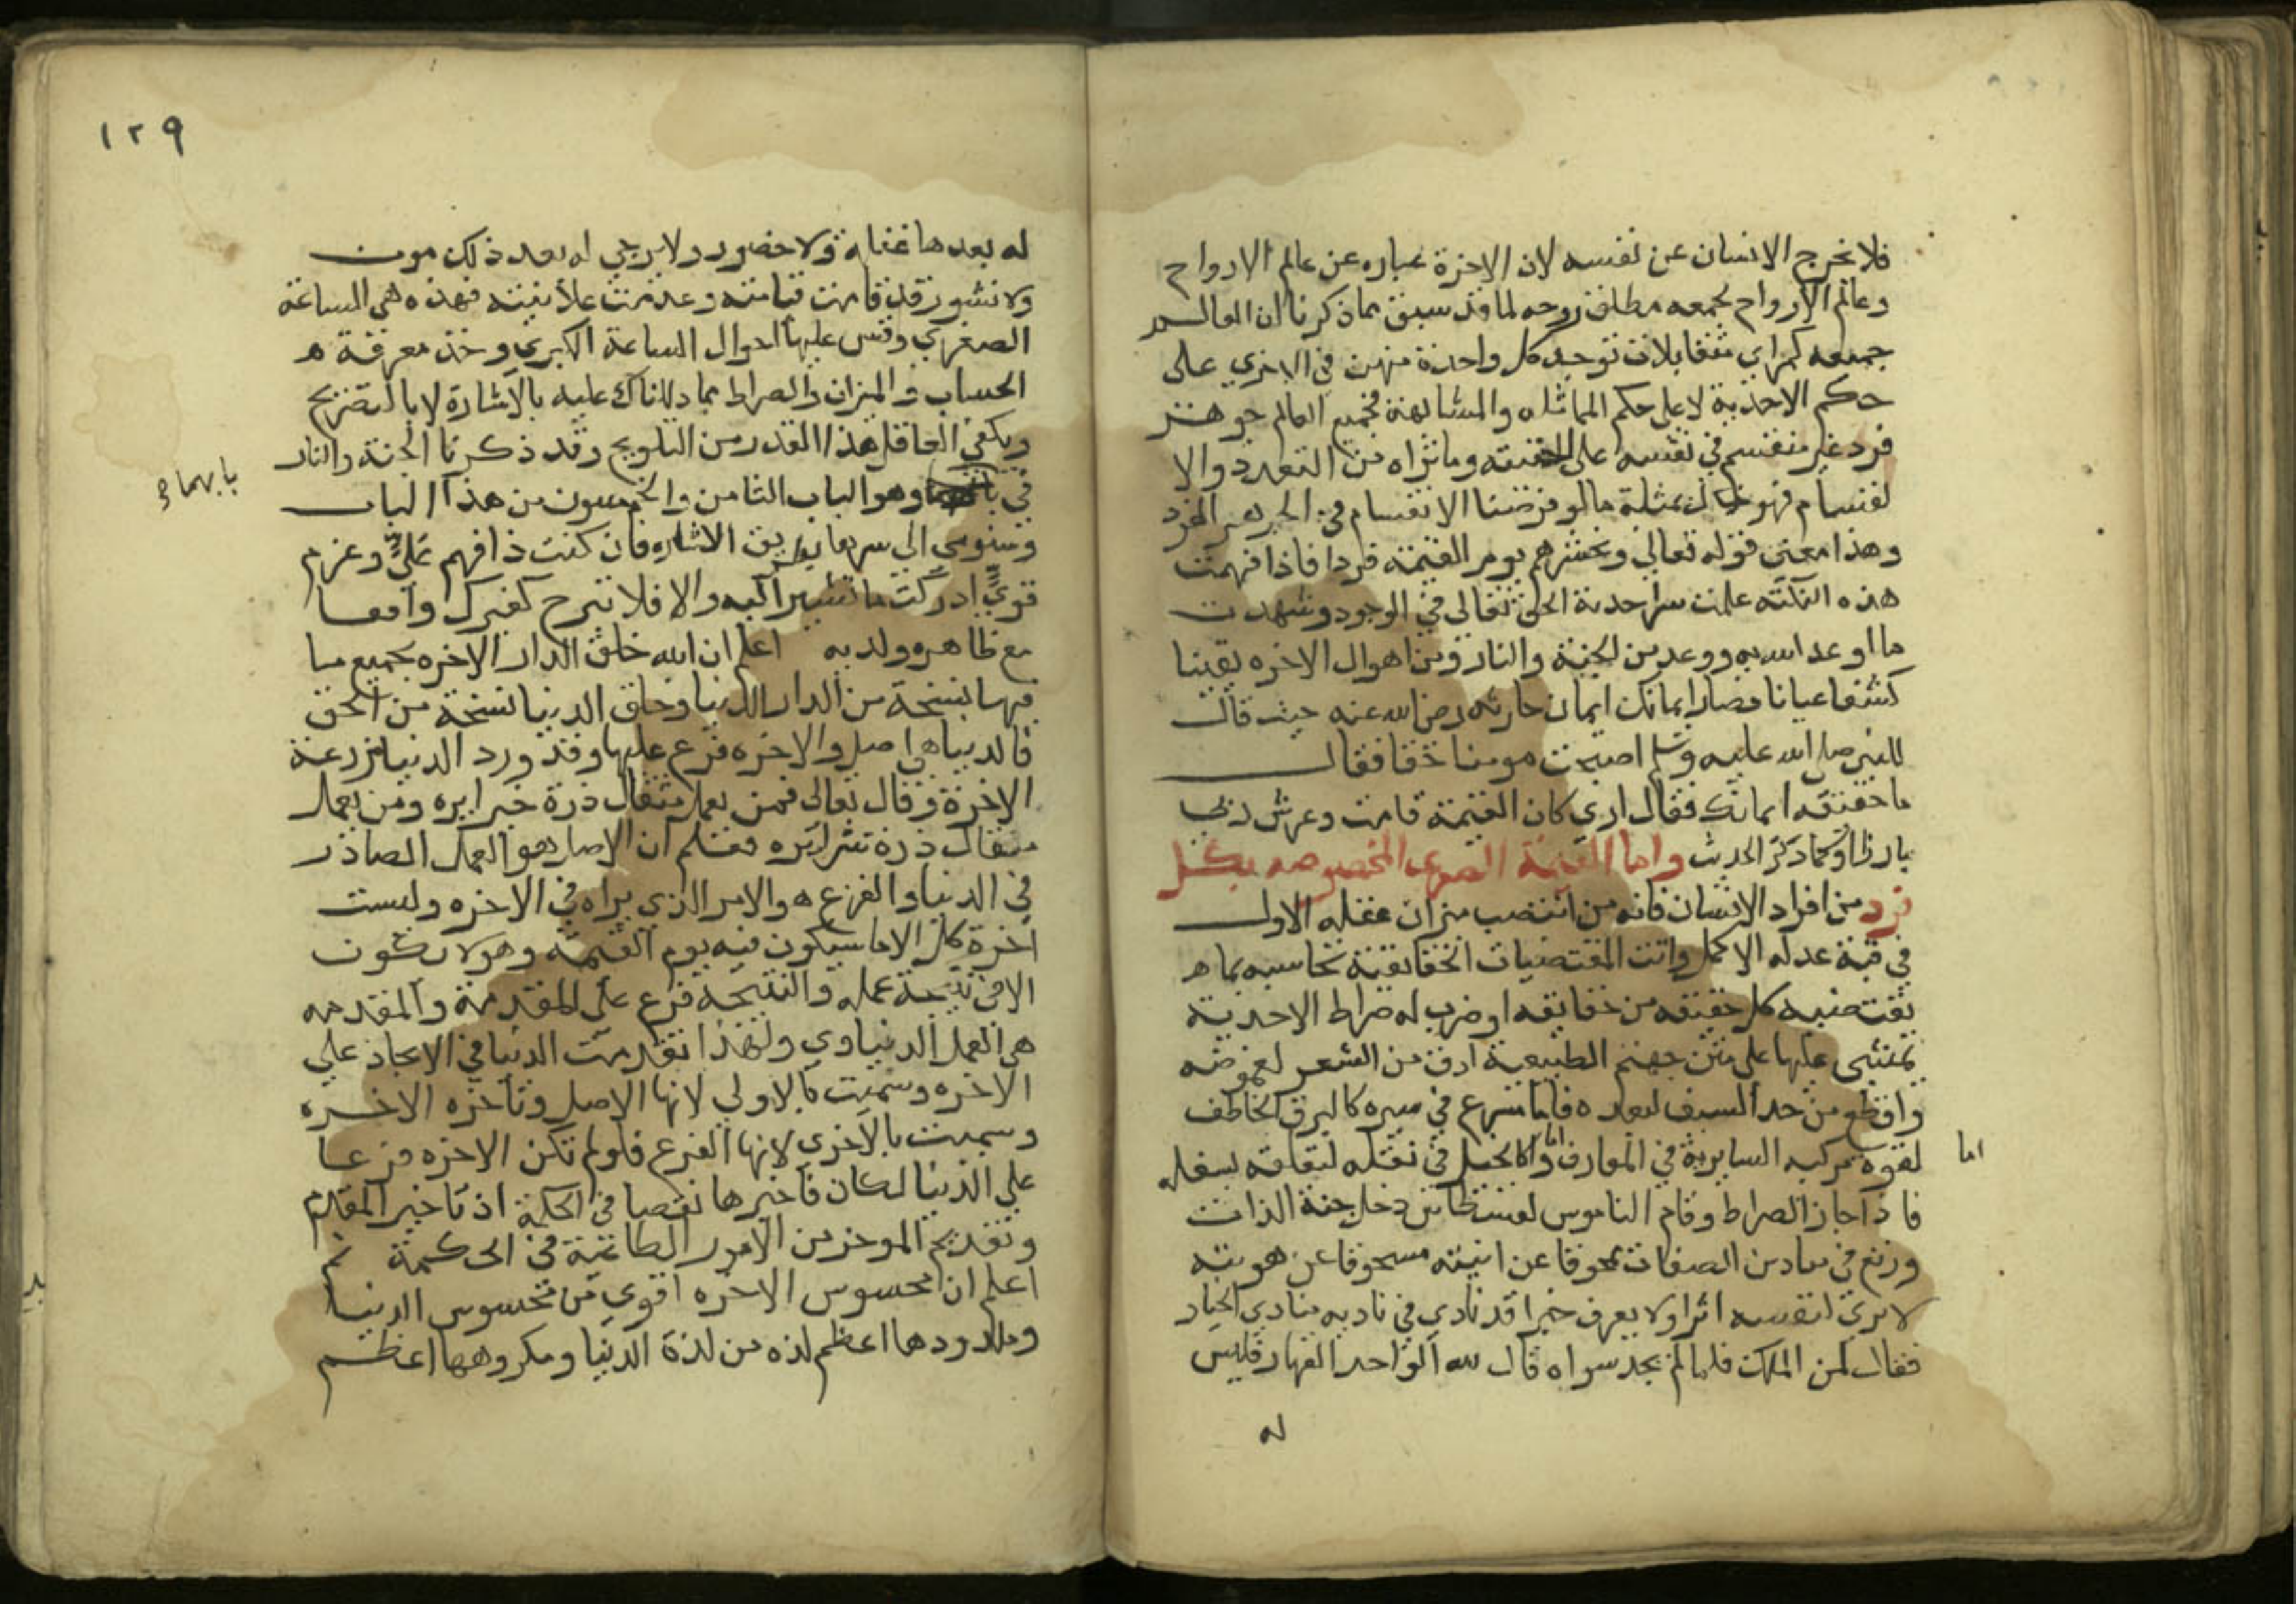 فلا نخرج الانسان عن نفسه لان الاخرة عباره عن عالم الارواح
وعالم الارواح يجمعه مطلق روحه لما قد سبق مما ذكرنا ان العالم
جميعه كمراي متقابلات توجد كل واحدة منهن في الاخري على
حكم الاحدية لا على حكم المماثله والمشابهة فجميع العالم جوهر
فرد غير منقسم في نفسه على الحقيقه وما تراه من التعدد والا
نقسام فهو خيال بمثابة ما لو فرضنا الانقسام في الجوهر الفرد
وهذا معنى قوله تعالى ونحشرهم يوم القيمة فردا فاذا فهمت
هذه النكته علمت سر احدية الحق تعالى في الوجود وشهدت
ما اوعد الله به ووعد من الجنة والنار ومن اهوال الاخره يقينا
كشفا عيانا فصار ايمانك ايمان حارثه رضي الله عنه حيث قال
للنبي صلى الله عليه وسلم اصبحت مومنا حقا فقال
ما حقيقه ايمانك فقال اري كان القيمة قامت وعرش ربي
بارزا وكما ذكر الحديث واما القيمة الصغرى المخصوصه بكل
فرد من افراد الانسان فانه من انتصب ميزان عقله الاول
في قبة عدله الاكمل واتت المقتضيات الحقائقية تحاسبه بما
تقتضيه كل حقيقه من حقايقه او ضرب له صراط الاحدية
يمشي عليها على متن جهنم الطبيعية ادق من الشعر لغموضه
واقطع من حد السيف لبعده فاما مسرع في سيره كالبرق الخاطف
لقوة مركبه السايرة في المعارف واما كالجبل في ثقله لتعلقه بسفله
اما
فاذا جاز الصراط وقام الناموس لقسطاس دخل جنة الذات
ورتع في ميادين الصفات ممحوقا عن انيته مسحوقا عن هويته
لا يري لنفسه اثرا ولا يعرف خبرا قد نادي في ناديه منادي الجبار
فقال لمن الملك فلما لم يجد سواه قال لله الواحد القهار فليس
له
١٢٩
له بعدها غيبة ولا حضور ولا يرجي له بعد ذلك موت
ولا نشور قد قامت قيامته وعدمت علانيته فهذه هي الساعة
الصغري وقس عليها احوال الساعة الكبري وخذ معرفة
الحساب والميزان والصراط مما دللناك عليه بالاشارة لا بالتصريح
ويكفي العاقل هذا القدر من التلويح وقد ذكرنا الجنة والنار
في وهو الباب الثامن والخمسون من هذا الباب
بابهما
وسنومي الى سرهما بطريق الاشاره فان كنت ذا فهم عليّ وعزم
قويّ ادركت ما نشير اليه والا فلا تبرح كغيرك واقفا
مع ظاهره ولد به اعلم ان الله خلق الدار الاخره بجميع ما
فيها نسخة من الدار الدنيا وخلق الدنيا نسخة من الحق
فالدنيا هي اصل والاخره فرع عليها وقد ورد الدنيا مزرعة
الاخرة وقال تعالى فمن يعمل مثقال ذرة خيرا يره ومن يعمل
مثقال ذرة شرا يره فعلم ان الاصل هو العمل الصادر
في الدنيا والفرع هو الامر الذي يراه في الاخره وليست
اخرة كل الا ما سيكون فيه يوم القيمه وهو لا يكون
الا في نتيجة عمله والنتيجة فرع على المقدمة والمقدمه
هي العمل الدنياوي ولهذا تقدمت الدنيا في الايجاد على
الاخره وسميت بالاولي لانها الاصل وتاخره الاخره
وسميت بالاخرى لانها الفرع فلو لم تكن الاخره فرعا
على الدنيا لكان تاخيرها نقصا في الحكمة اذ تاخير المقدم
وتقديم الموخر من الامور الطاعنة في الحكمة ثم
اعلم ان محسوس الاخره اقوي من محسوس الدنيا
وملذوذها اعظم لذه من لذة الدنيا ومكروهها اعظم